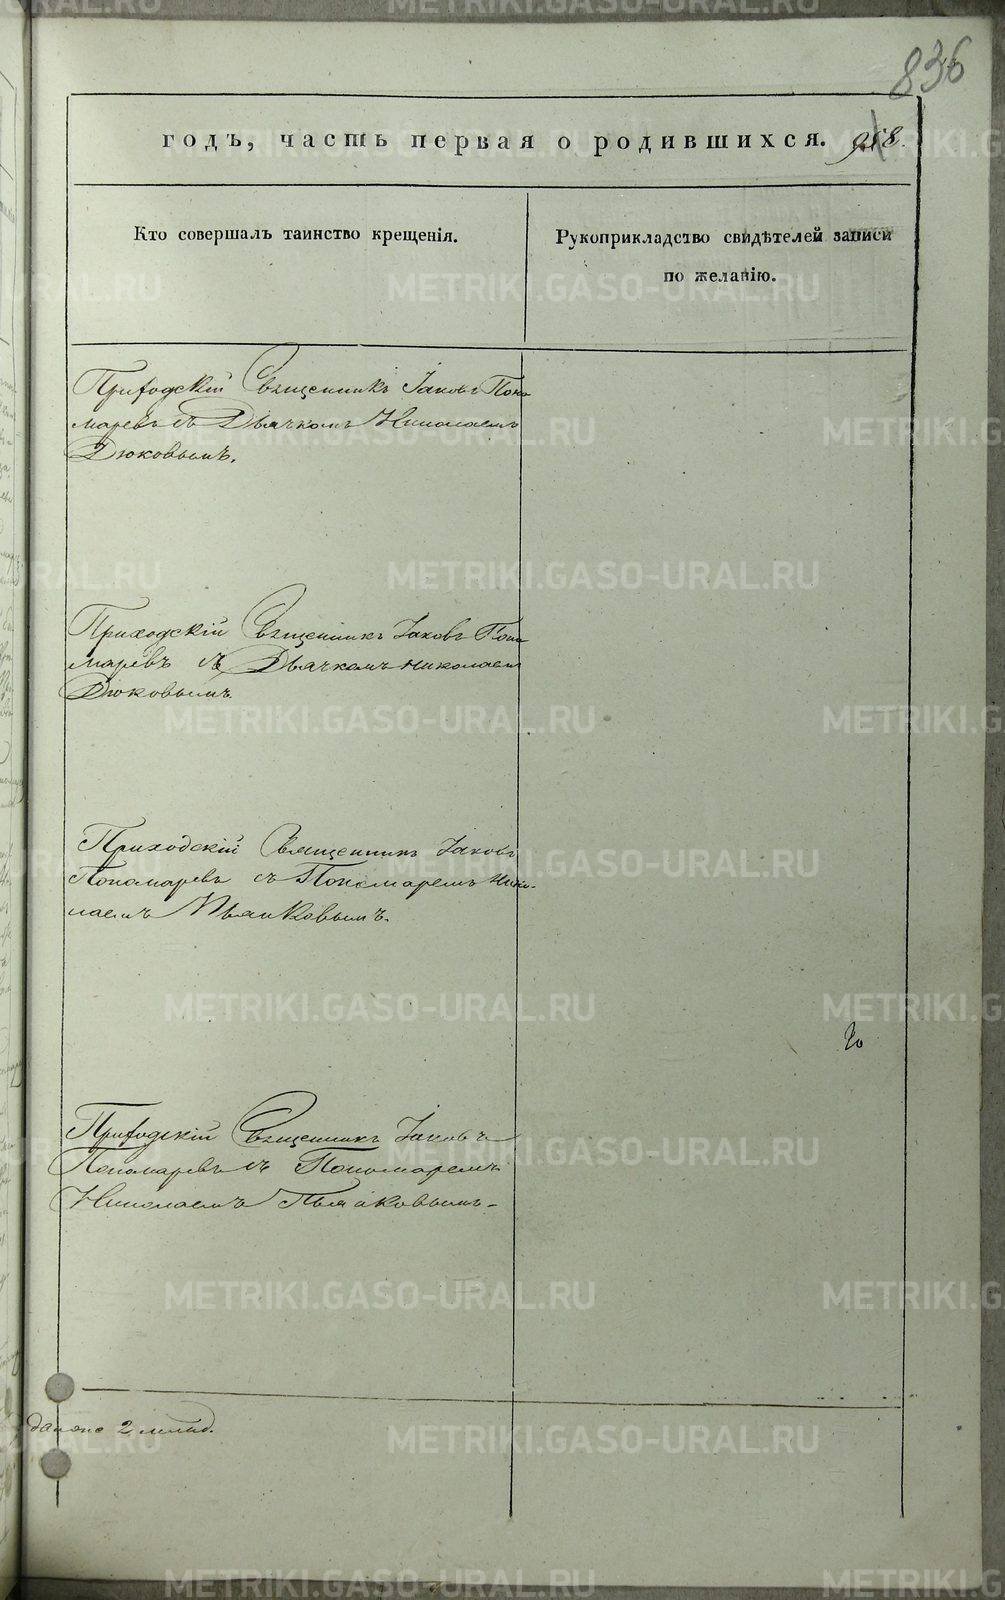 836
годъ, часть первая о родившихся. 958.
Кто совершалъ таинство крещенія.
Рукоприкладство свидѣтелей записи
по желанію.
Приходскій Священникъ Іаковъ Поно
маревъ съ Дьячкомъ Николаемъ
Дюковымъ.
Приходскій Священникъ Іаковъ Поно
маревъ съ Дьячкомъ Николаем
Дюковымъ.
Приходскій Священникъ Іаковъ
Пономаревъ съ Пономаремъ Нико-
лаемъ Пьянковымъ.
Приходскій Священникъ Іаковъ
Пономаревъ съ Пономаремъ
Николаемъ Пьянковымъ.
METRIKI.GASO-URAL.RU